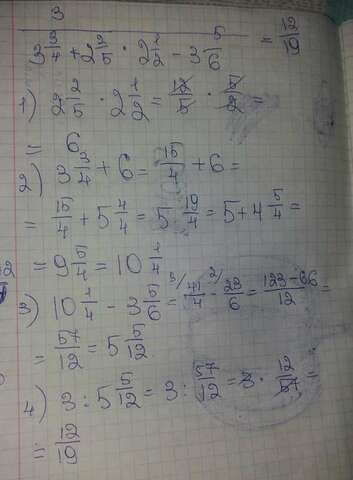 3 / (3 3/4 + 2 2/5 · 2 1/2 - 3 5/6) = 12/19
1) 2 2/5 · 2 1/2 = 12/5 · 5/2 =
= 6
2) 3 3/4 + 6 = 15/4 + 6 =
= 15/4 + 5 4/4 = 5 19/4 = 5 + 4 5/4 =
= 9 5/4 = 10 1/4
3) 10 1/4 - 3 5/6 = 3/ 41/4 - 2/ 23/6 = 123-66/12 =
= 57/12 = 5 5/12
4) 3 : 5 5/12 = 3 : 57/12 = 3 · 12/57 =
= 12/19